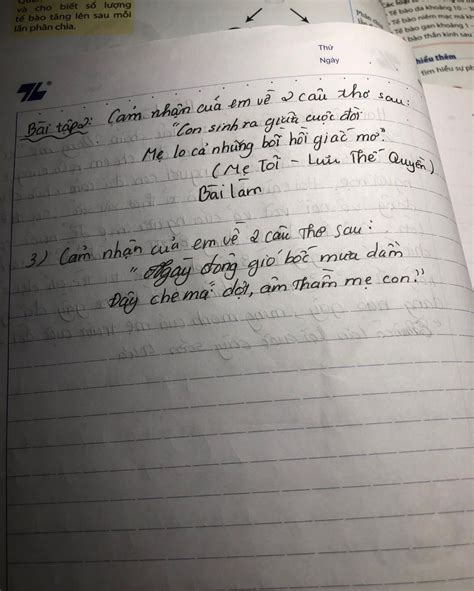 và cho biết số lượng
tế bào tăng lên sau mỗi
lần phân chia.
Tế bào niêm mạc
Tế bào gan khoảng
bào thần kinh sau
hiểu thêm
Tìm hiểu sự
Thứ
Ngày
TL
Bài tập2: Cảm nhận của em về 2 câu thơ sau:
"Con sinh ra giữa cuộc đời
Mẹ lo cả những bồi hồi giấc mơ"
(Mẹ Tôi - Lưu Thế Quyền)
Bài làm
3) Cảm nhận của em về 2 câu thơ sau:
"Ngày đông gió bấc mưa dầm
Đậy che má đợi, âm thầm mẹ con."